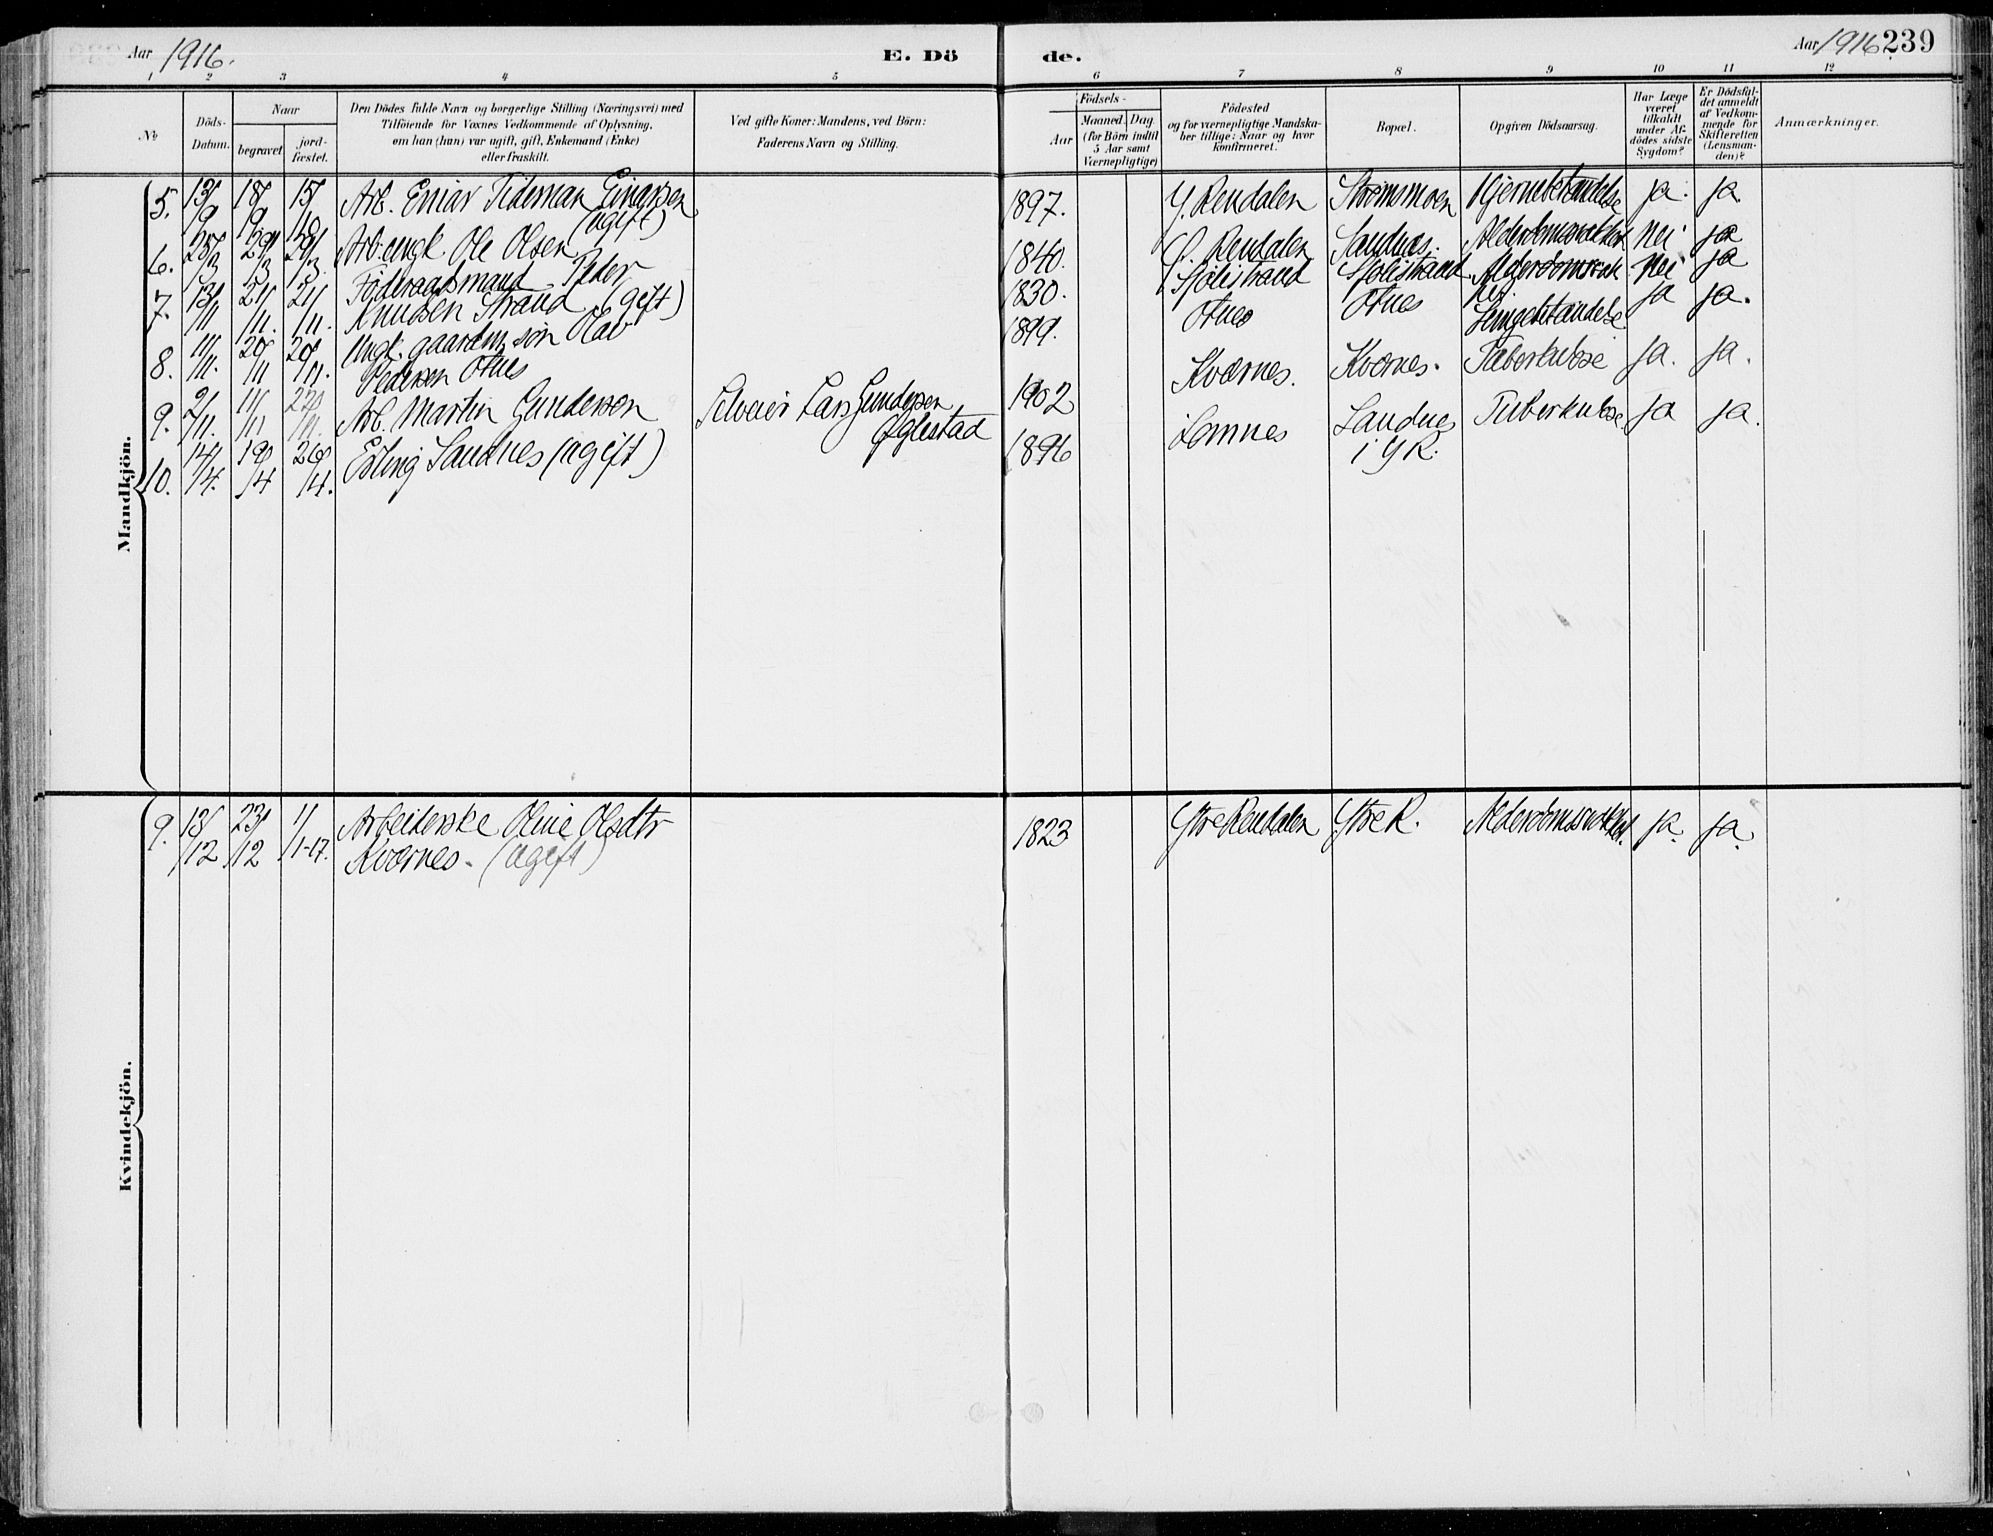 Aar 1916.
E. Dö
de.
Aar 1916 239
1 2 3 4 5 6 7 8 9 10 11 12
No
Döds-
Datum.
Naar
begravet
jord-
fæstet.
Den Dödes fulde Navn og borgerlige Stilling (Næringsvei) med
Tilföiende for Voxnes Vedkommende af Oplysning,
om han (hun) var ugift, gift, Enkemand (Enke)
eller fraskilt.
Ved gifte Koner: Mandens, ved Börn:
Faderens Navn og Stilling.
Födsels-
Aar
Maaned. Dag
(for Börn indtil
5 Aar samt
Værnepligtige)
Födested
og for værnepligtige Mandska-
ber tillige: Naar og hvor
konfirmeret.
Bopæl.
Opgiven Dödsaarsag.
Har Læge
været
tilkaldt
under Af-
dödes sidste
Sygdom?
Er Dödsfal-
det anmeldt
af Vedkom-
mende for
Skifteretten
(Lensman-
den)?
Anmærkninger.
Mandkjön.
5. 13/9 18/9 15/10 Arb. Einar Tideman Einarsen 1897. Y. Rendalen Strømsmoen Hjernebetændelse ja. ja
(ugift)
6. 25/3 29/3 29/3 Arb. ungk. Ole Olsen 1840. Y. Rendalen Sandnes. Alderdomssvakhet nei ja
7. 13/11 21/11. 21/11. Föderaadsmand Peder 1830. Sjölistrand Sjölistrand nei ja
Knudsen Strand (gift)
8. 11/11. 20/11 20/11. Ungk. gaardm. søn Olav 1899. Otnes Otnes ja ja.
Pedersen Otnes
9. 9/11. 11/11 22/11. Arb. Martin Gunderson Selveier Lars Gundersen 1902 Kværnes. Kværnes. Tuberkulose ja. ja.
Øglestad
10. 14/4. 19/4 26/4. Erling Sandnes (ugift) 1896 Lomnes Sandnes Tuberkulose ja ja.
i Y R.
Kvindekjön.
9. 13/12 23/12 1/1-17. Arbeiderske Oline Olsdtr 1823 Ytre Rendalen Ytre R. Alderdomssvakhet. ja. ja.
Kværnes. (ugift)